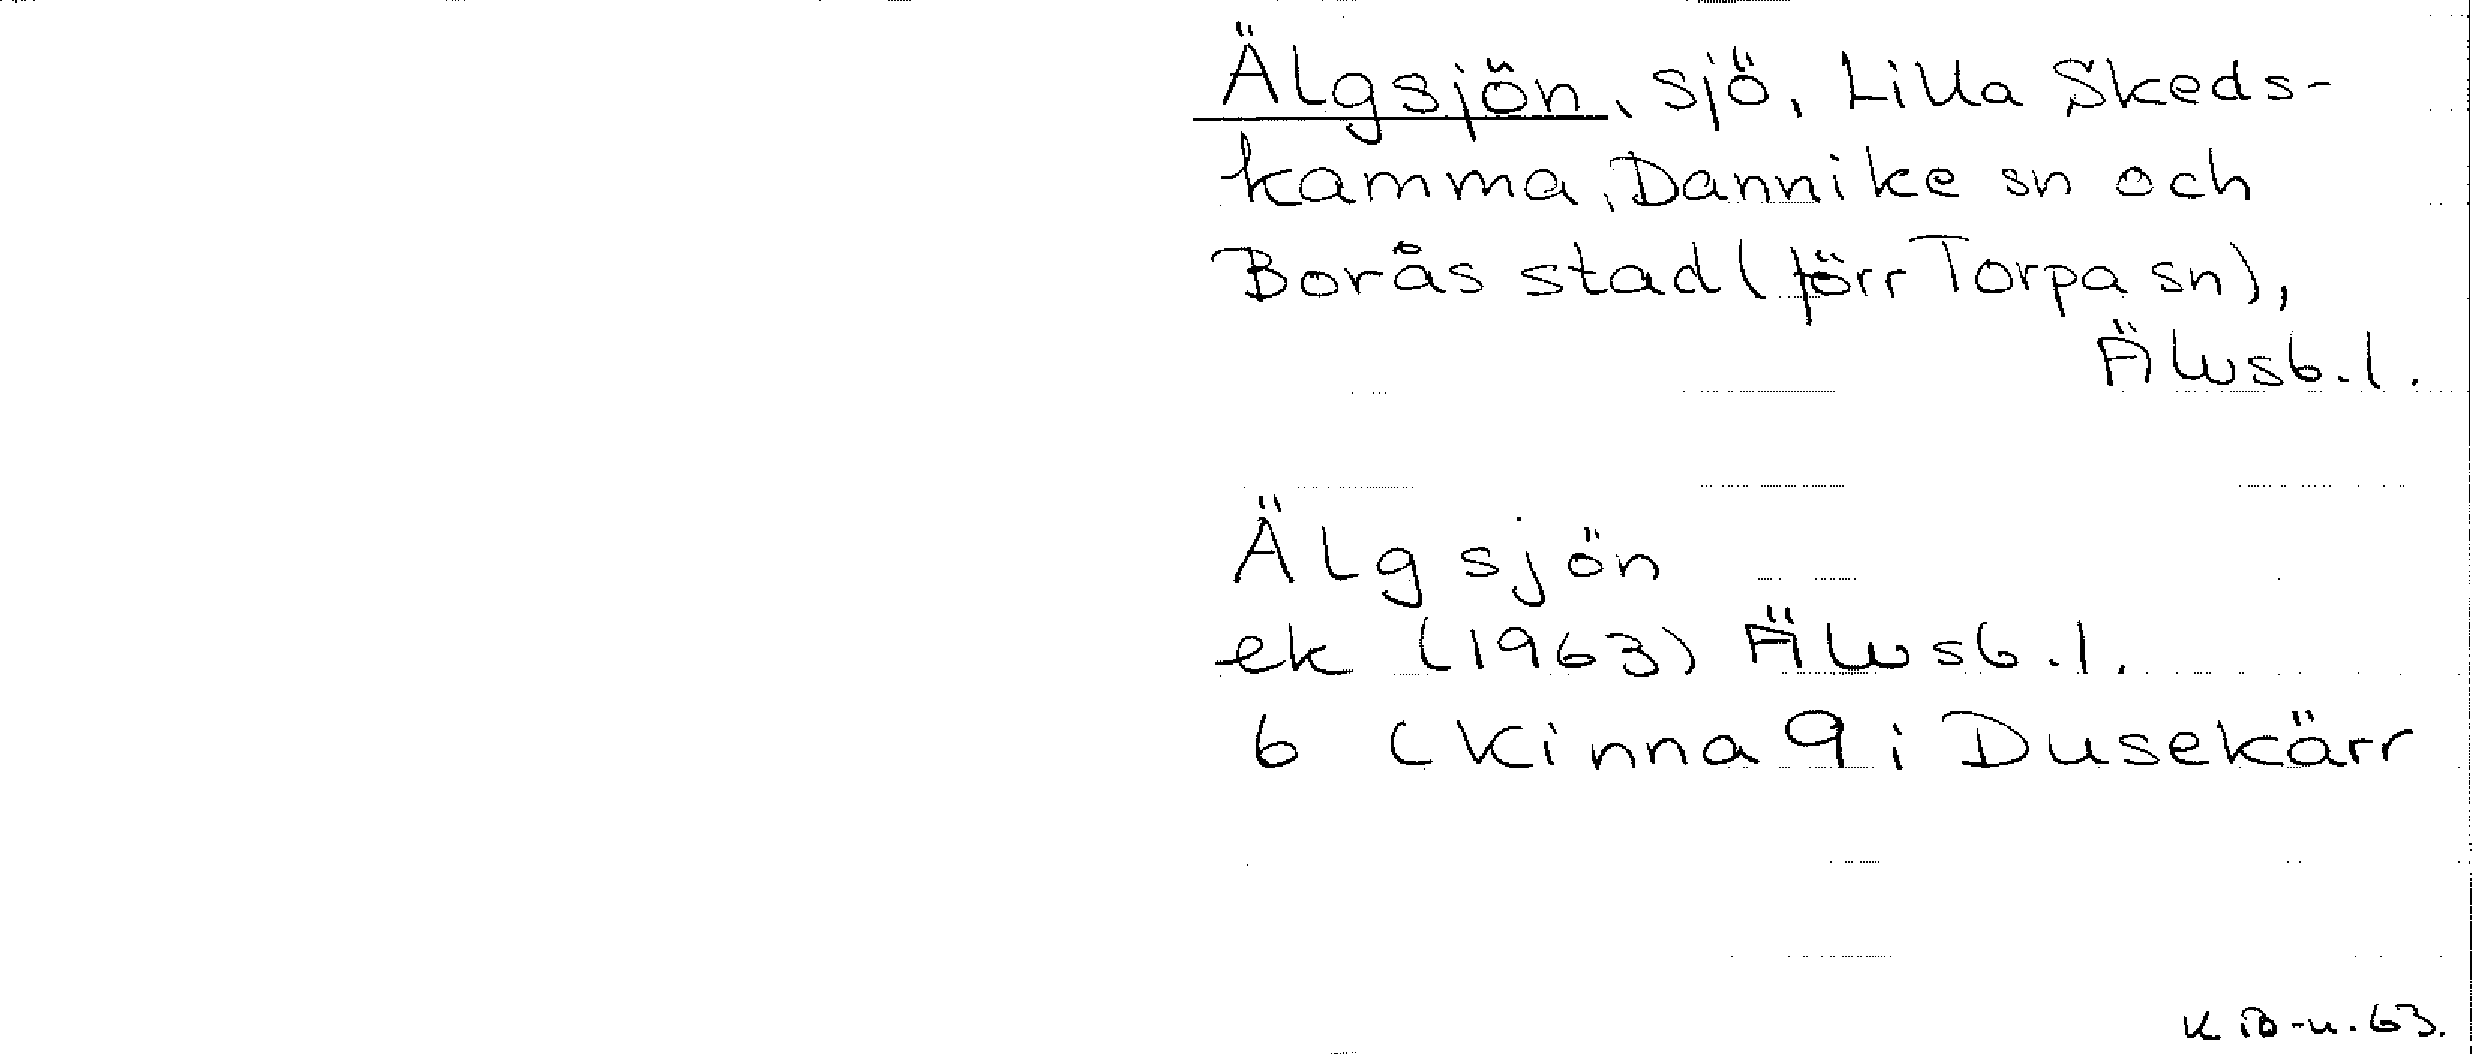 Älgsjön, sjö, Lilla Skeds-
kamma, Dannike sn och
Borås stad (förr Torpa sn),
Älvsb. l.
Älgsjön
ek (1963) Älvsb. l.
6 (Kinna 9 i Dusekärr
63.